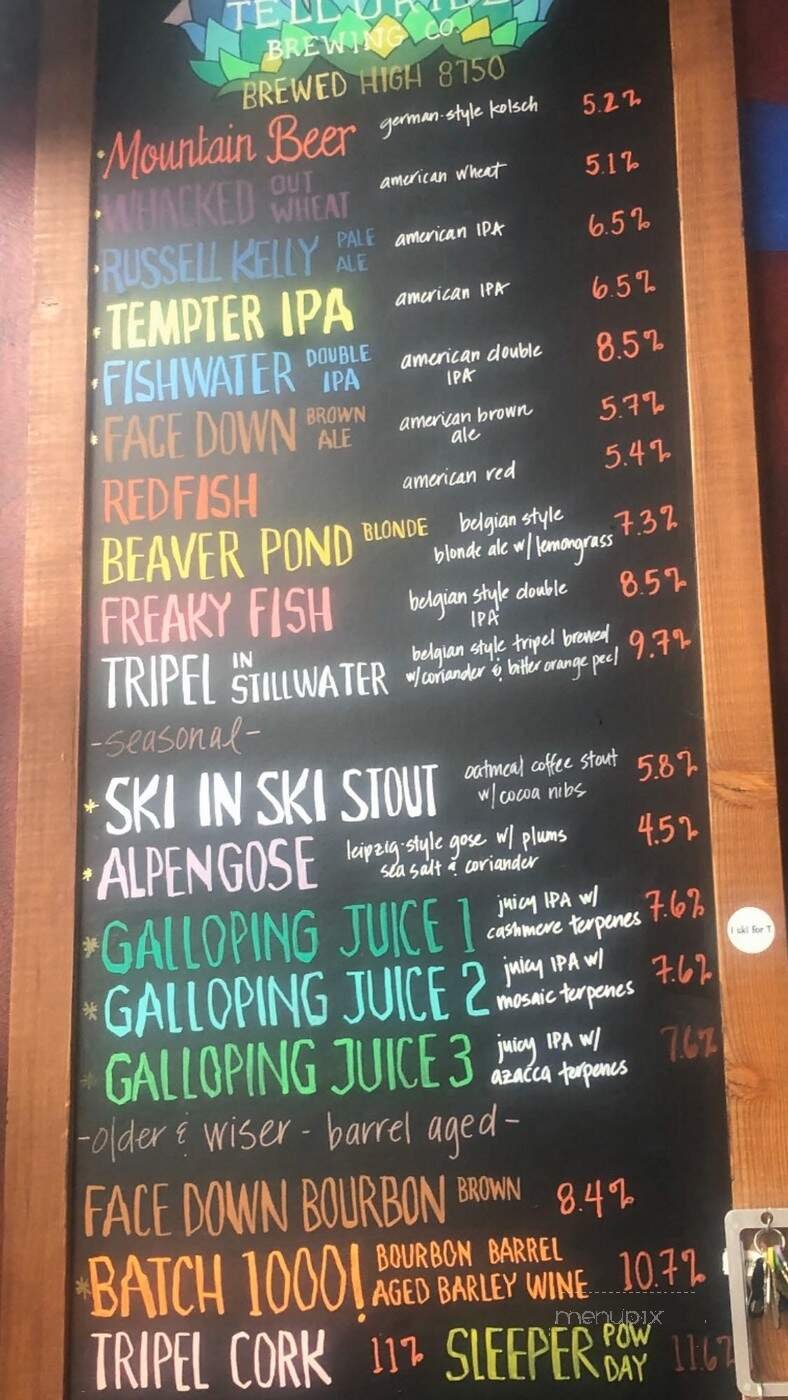 TELLURIDE
BREWING CO.
BREWED HIGH 8750
Mountain Beer german-style kolsch 5.2%
WHACKED OUT WHEAT american wheat 5.1%
RUSSELL KELLY PALE ALE american IPA 6.5%
TEMPTER IPA american IPA 6.5%
FISHWATER DOUBLE IPA american double IPA 8.5%
FACE DOWN BROWN ALE american brown ale 5.7%
REDFISH american red 5.4%
BEAVER POND BLONDE belgian style blonde ale w/ lemongrass 7.3%
FREAKY FISH belgian style double IPA 8.5%
TRIPEL IN STILLWATER belgian style tripel brewed w/coriander & bitter orange peel 9.7%
-seasonal-
SKI IN SKI STOUT oatmeal coffee stout w/cocoa nibs 5.8%
ALPENGOSE leipzig-style gose w/ plums sea salt & coriander 4.5%
GALLOPING JUICE 1 juicy IPA w/ cashmere terpenes 7.6%
GALLOPING JUICE 2 juicy IPA w/ mosaic terpenes 7.6%
GALLOPING JUICE 3 juicy IPA w/ azacca terpenes 7.6%
-older & wiser - barrel aged-
FACE DOWN BOURBON BROWN 8.4%
BATCH 1000! BOURBON BARREL AGED BARLEY WINE 10.7%
TRIPEL CORK 11% SLEEPER POW DAY 11.6%
I ski for T
menupix